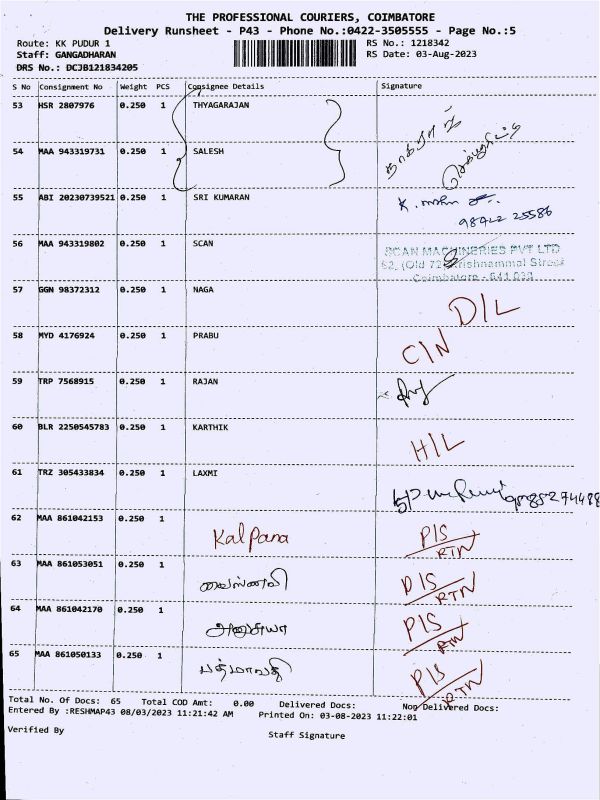 THE PROFESSIONAL COURIERS, COIMBATORE
Delivery Runsheet - P43 - Phone No.:0422-3505555 - Page No.:5
Route: KK PUDUR 1 RS No.: 1218342
Staff: GANGADHARAN RS Date: 03-Aug-2023
DRS No.: DCJB121834205
S No Consignment No Weight PCS Consignee Details Signature
53 HSR 2807976 0.250 1 THYAGARAJAN
54 MAA 943319731 0.250 1 SALESH
55 ABI 20230739521 0.250 1 SRI KUMARAN
98422 25586
56 MAA 943319802 0.250 1 SCAN SCAN MACHINERIES PVT LTD
Coimbatore - 641 038
57 GGN 98372312 0.250 1 NAGA D/L
58 MYD 4176924 0.250 1 PRABU C/N
59 TRP 7568915 0.250 1 RAJAN
60 BLR 2250545783 0.250 1 KARTHIK H/L
61 TRZ 305433834 0.250 1 LAXMI
62 MAA 861042153 0.250 1 Kalpana P/S RTN
63 MAA 861053051 0.250 1 வைஸ்ணவி D/S RTN
64 MAA 861042170 0.250 1 அனுசியா P/S RTN
65 MAA 861050133 0.250 1 பத்மாவதி P/S RTN
Total No. Of Docs: 65 Total COD Amt: 0.00 Delivered Docs: Non Delivered Docs:
Entered By :RESHMAP43 08/03/2023 11:21:42 AM Printed On: 03-08-2023 11:22:01
Verified By Staff Signature